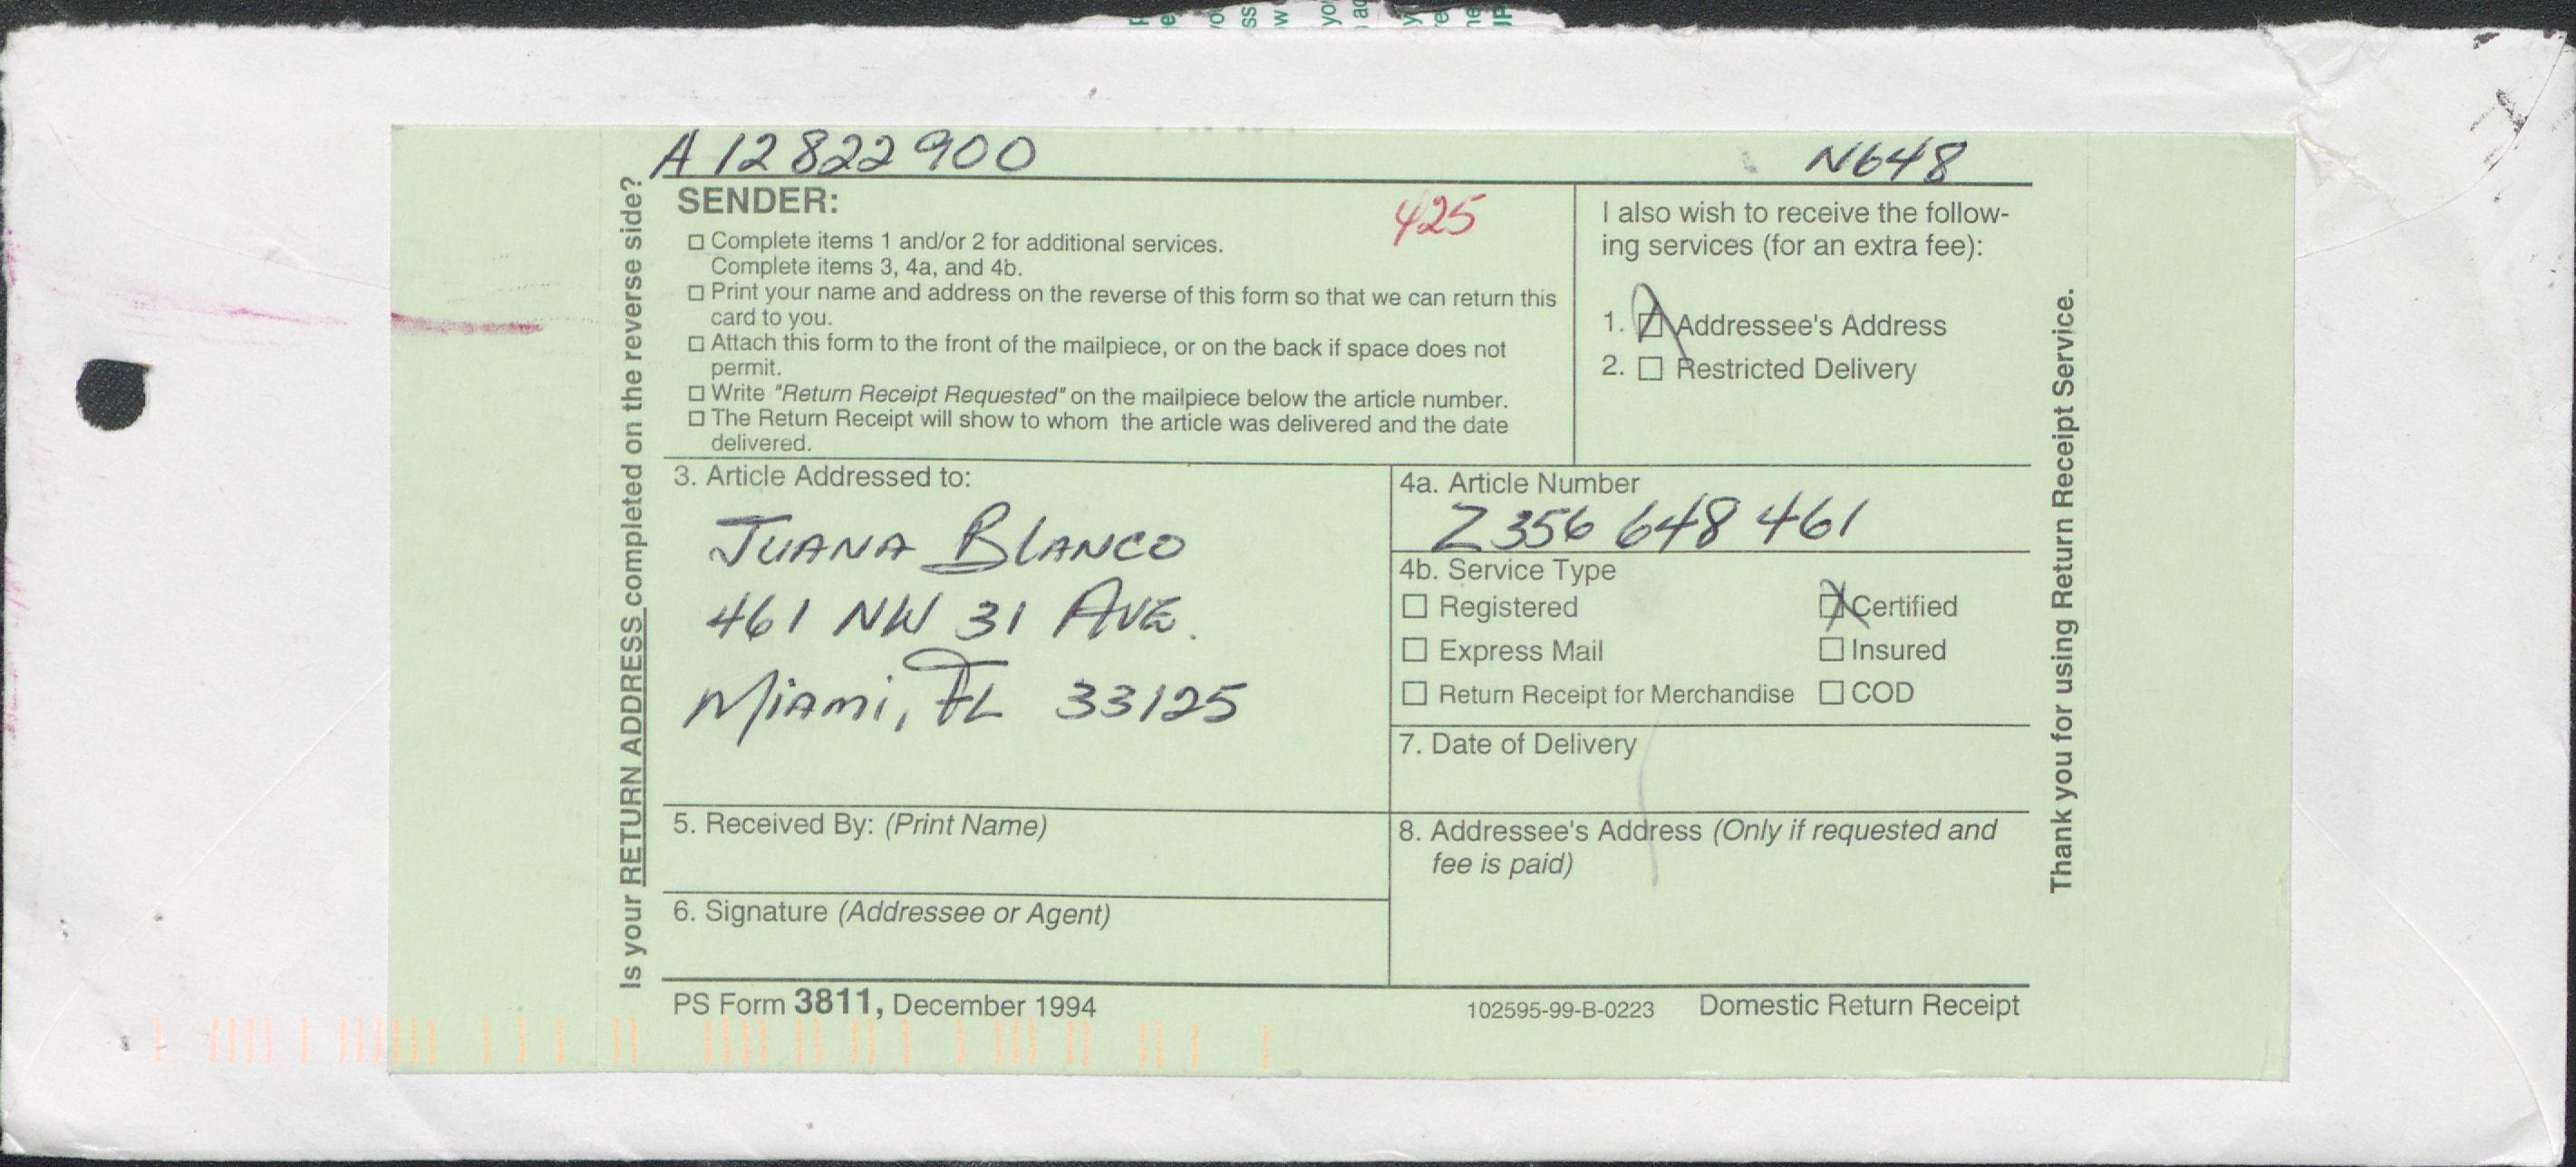 A 12 822 900
N648
SENDER:
425
Complete items 1 and/or 2 for additional services.
Complete items 3, 4a, and 4b.
Print your name and address on the reverse of this form so that we can return this
card to you.
Attach this form to the front of the mailpiece, or on the back if space does not
permit.
Write "Return Receipt Requested" on the mailpiece below the article number.
The Return Receipt will show to whom the article was delivered and the date
delivered.
I also wish to receive the follow-
ing services (for an extra fee):
1. Addressee's Address
2. Restricted Delivery
3. Article Addressed to:
JUANA BLANCO
461 NW 31 AVE.
Miami, FL 33125
4a. Article Number
Z 356 648 461
4b. Service Type
Registered
Certified
Express Mail
Insured
Return Receipt for Merchandise
COD
7. Date of Delivery
5. Received By: (Print Name)
8. Addressee's Address (Only if requested and
fee is paid)
6. Signature (Addressee or Agent)
PS Form 3811, December 1994
102595-99-B-0223
Domestic Return Receipt
Is your RETURN ADDRESS completed on the reverse side?
Thank you for using Return Receipt Service.